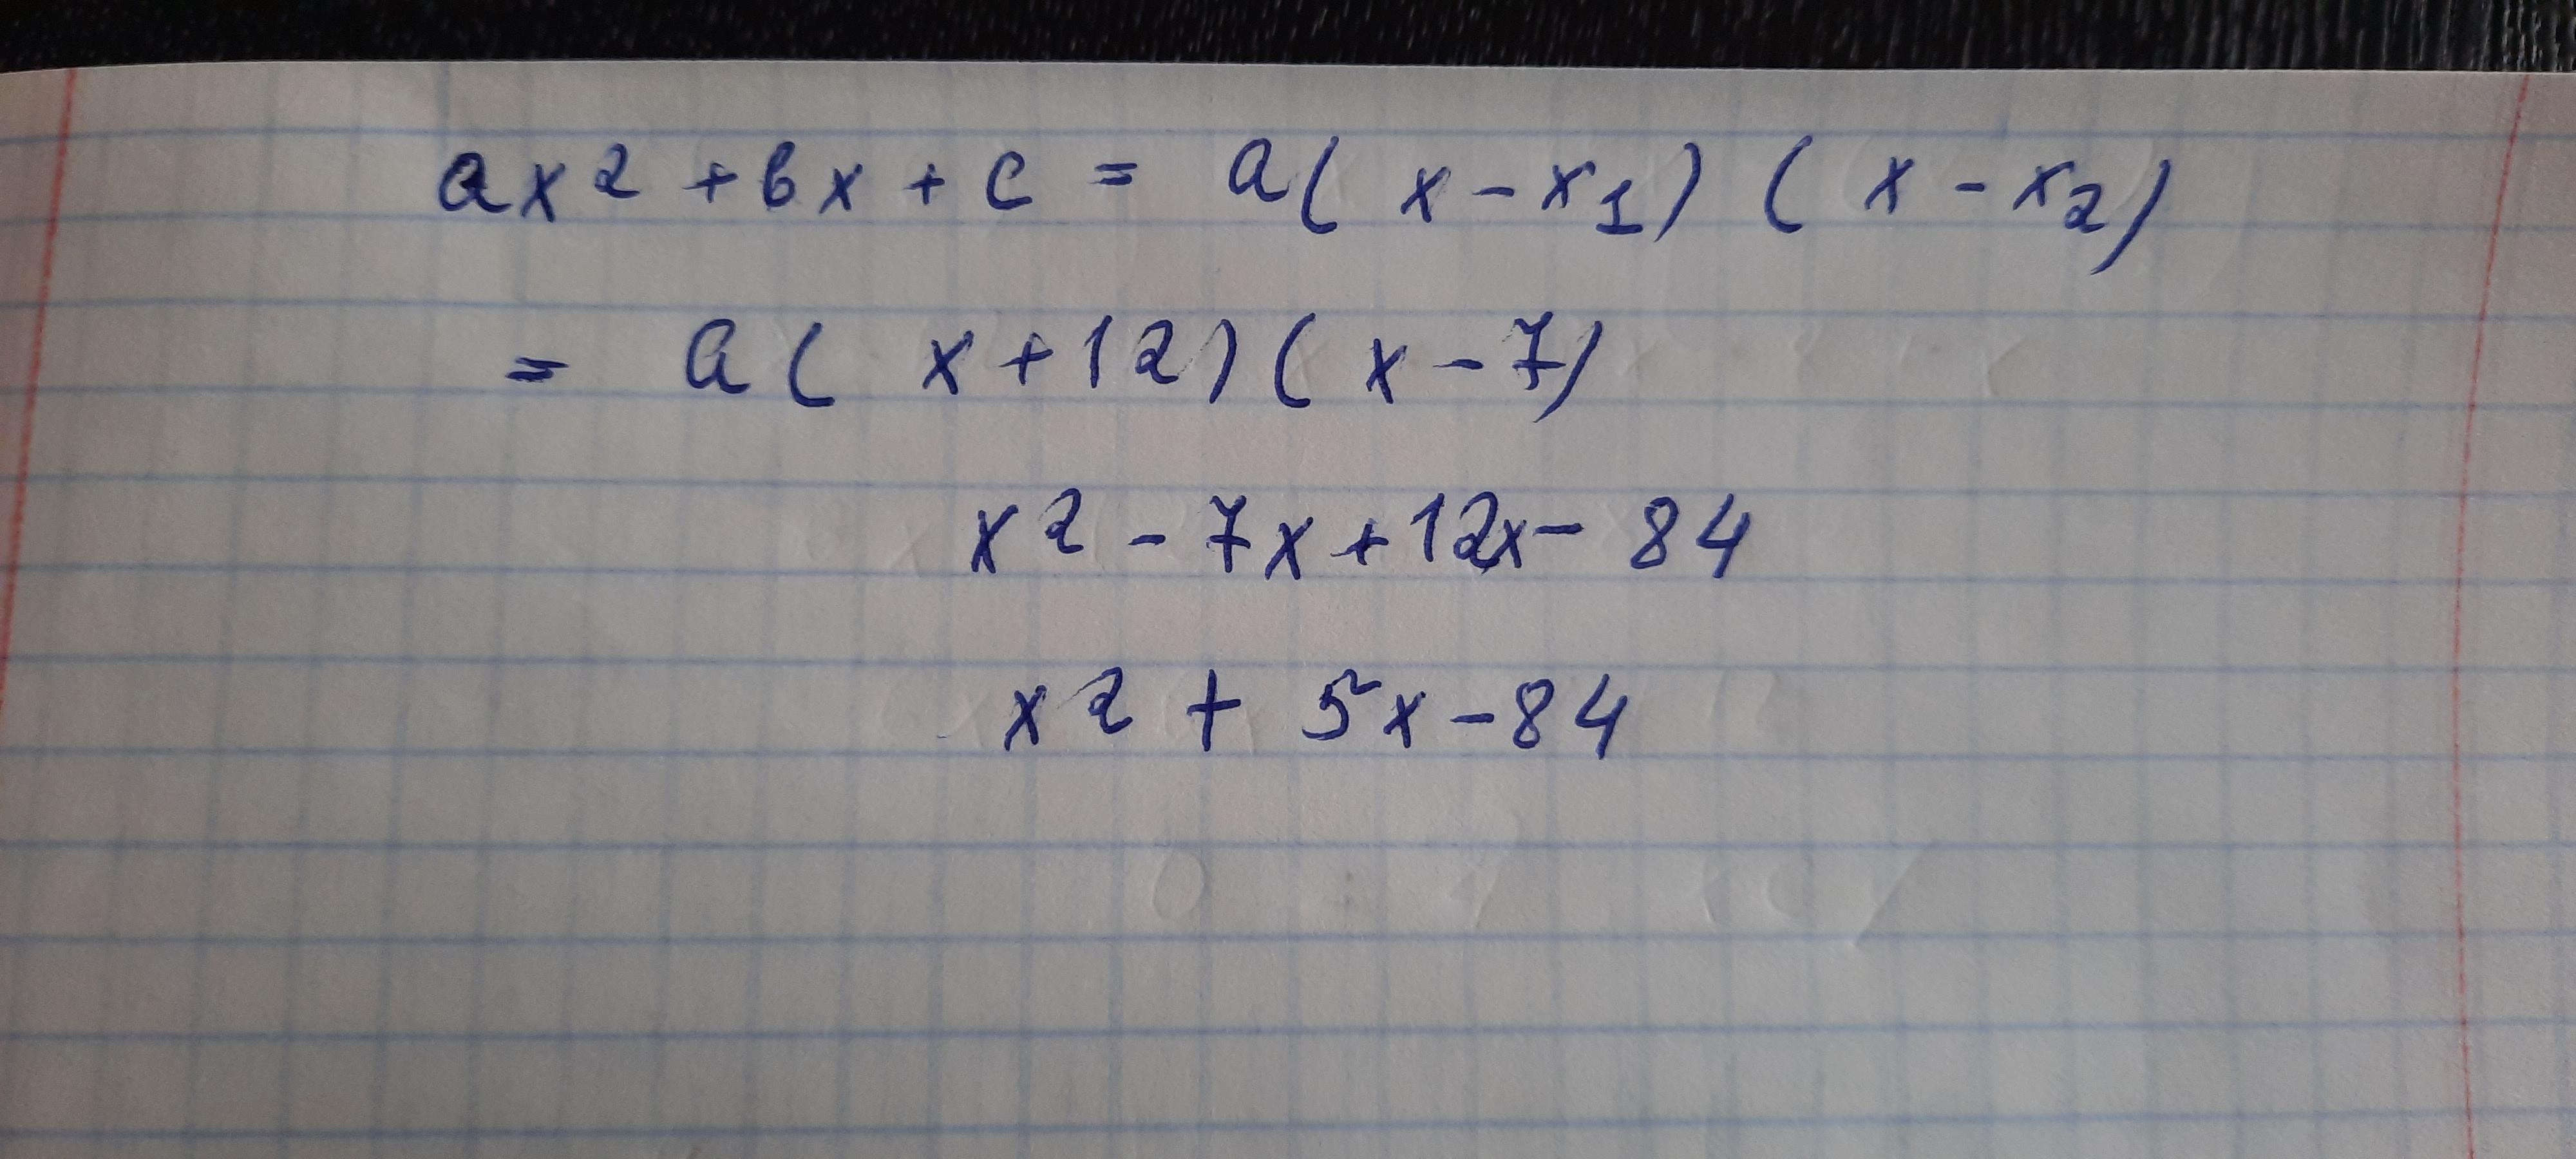 ax2 + bx + c = a(x - x1)(x - x2)
= a(x+12)(x-7)
x2 - 7x + 12x - 84
x2 + 5x - 84